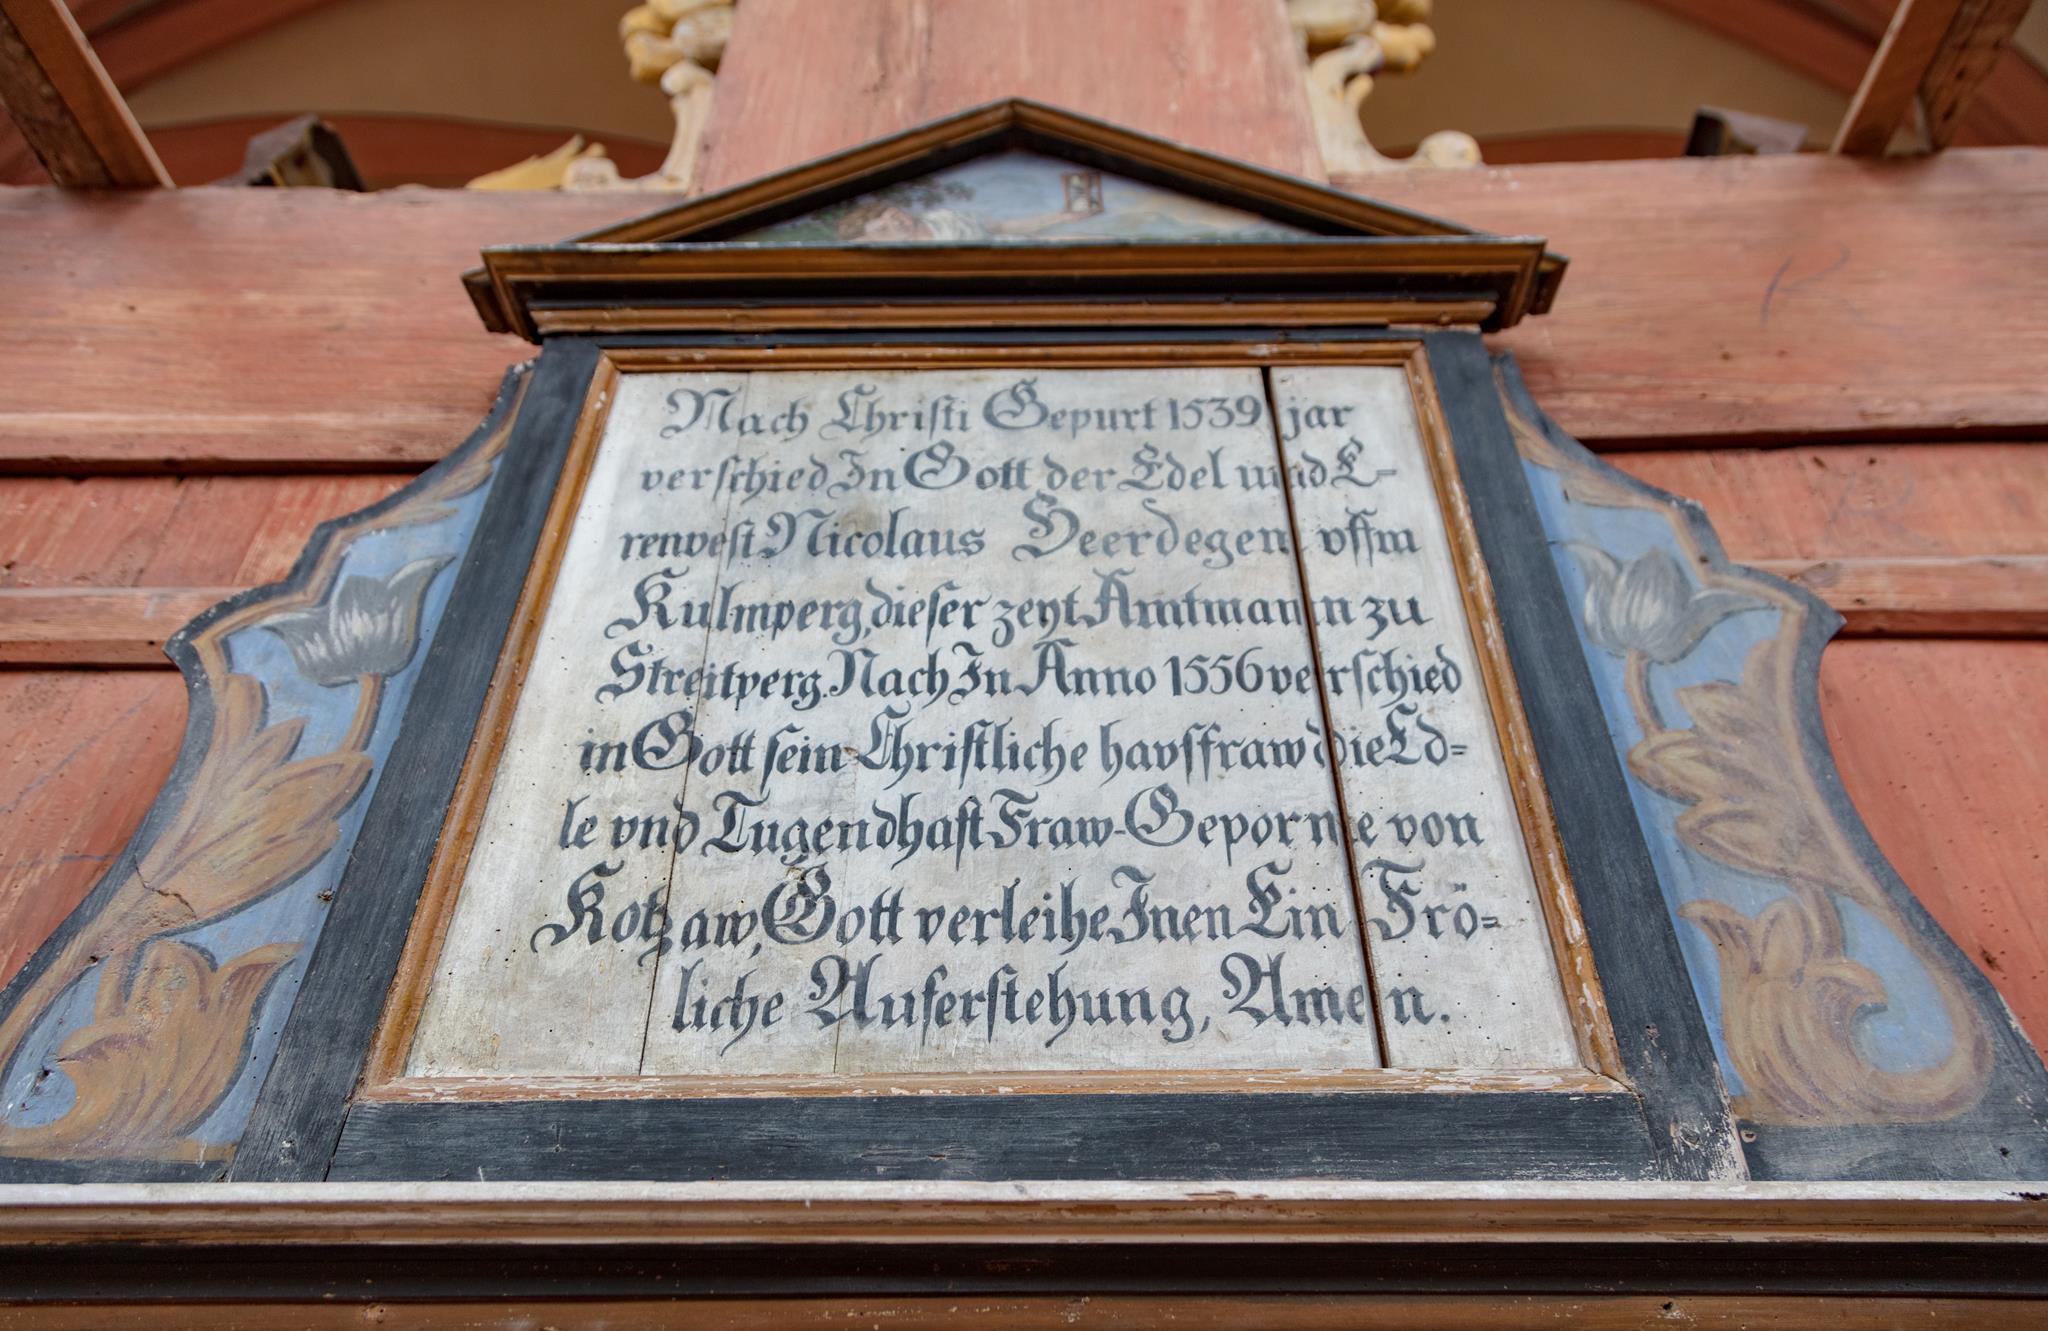 Nach Christi Gepurt 1539 jar
verschied In Gott der Edel uund E-
renvest Nicolaus Heerdegen vffm
Kulmperg, dieser zeyt Amtmann zu
Streitperg. Nach In Anno 1556 verschied
in Gott sein Christliche havsfraw die Ed=
le vnd Tugendhaft Fraw-Geporne von
Kotzaw, Gott verleihe Inen Ein Frö=
liche Auferstehung, Amen.